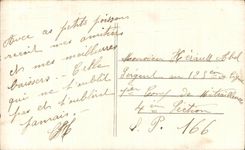 Avec ces petits poissons
reçoit mes amitiées
et mes meilleurs
baisers. Celle
qui ne t'oublit
pas et t'oublira
jamais.
Monsieur Hérault Abel
Sergent au 125e
4ème Section
S. P. 166